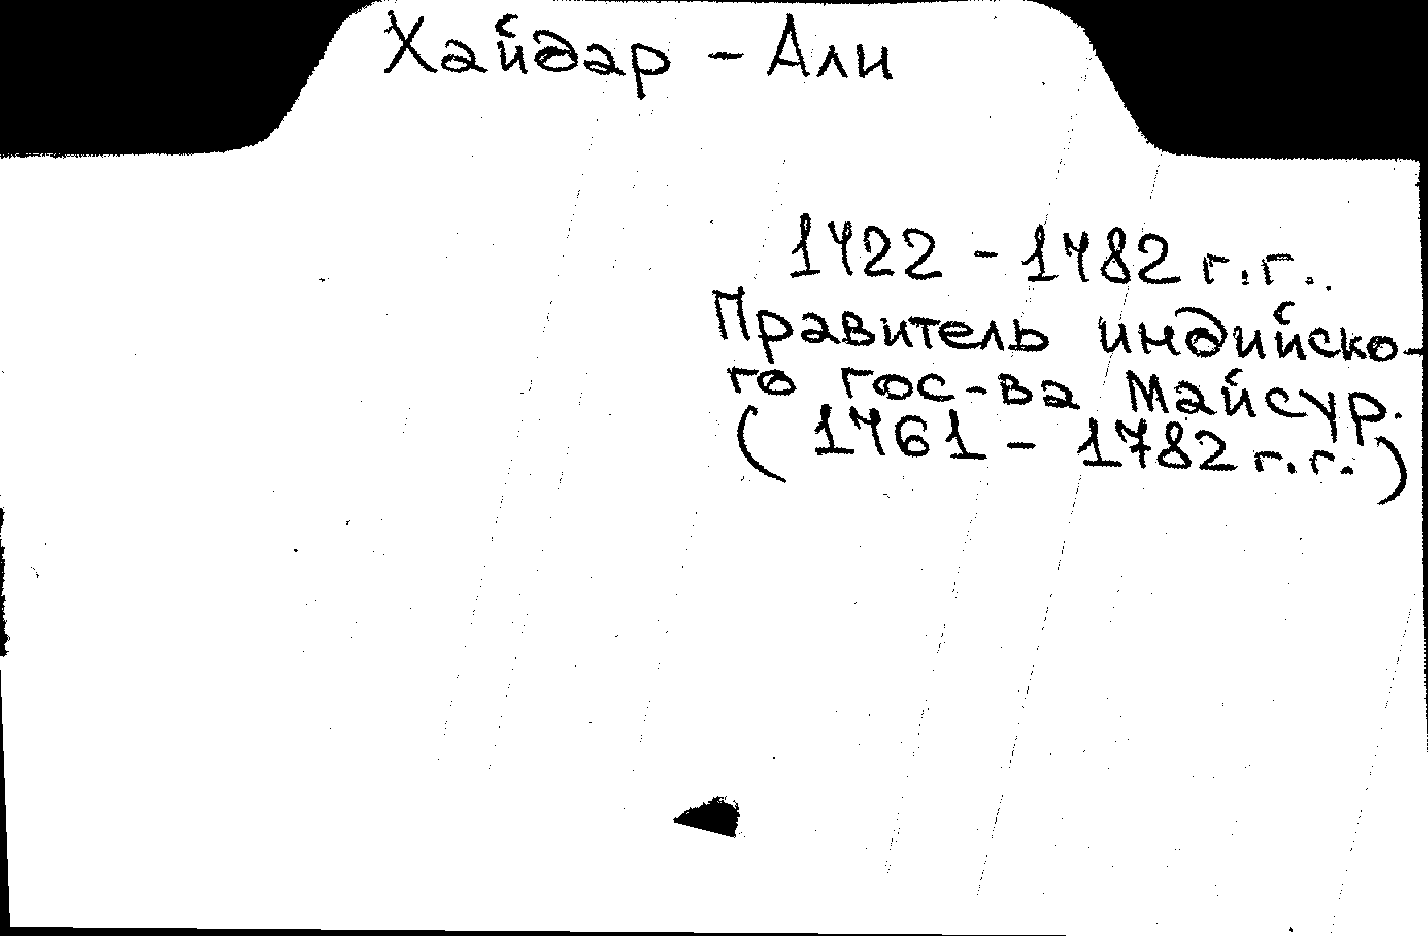 Хайдар - Али
1722 - 1782 г.г..
Правитель индийско-
го гос-ва Майсур.
( 1761 - 1782 г.г. )